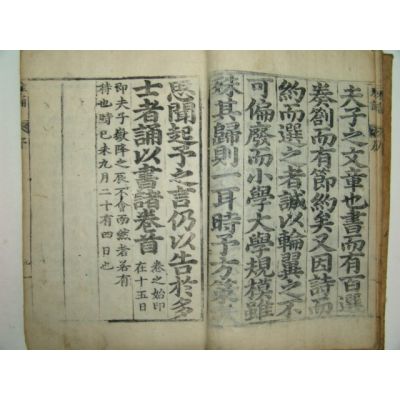 夫子之文章也書而有百選
奏劄而有節約矣又因詩而
約而選之者誠以輪翼之不
可偏廢而小學大學規模雖
殊其歸則一耳時予方
思聞起予之言仍以告於多
士者誦以書諸卷首
卷之始印
在十五日
即夫子嶽降之辰不會而然者若有
待也時己未九月二十有四日也